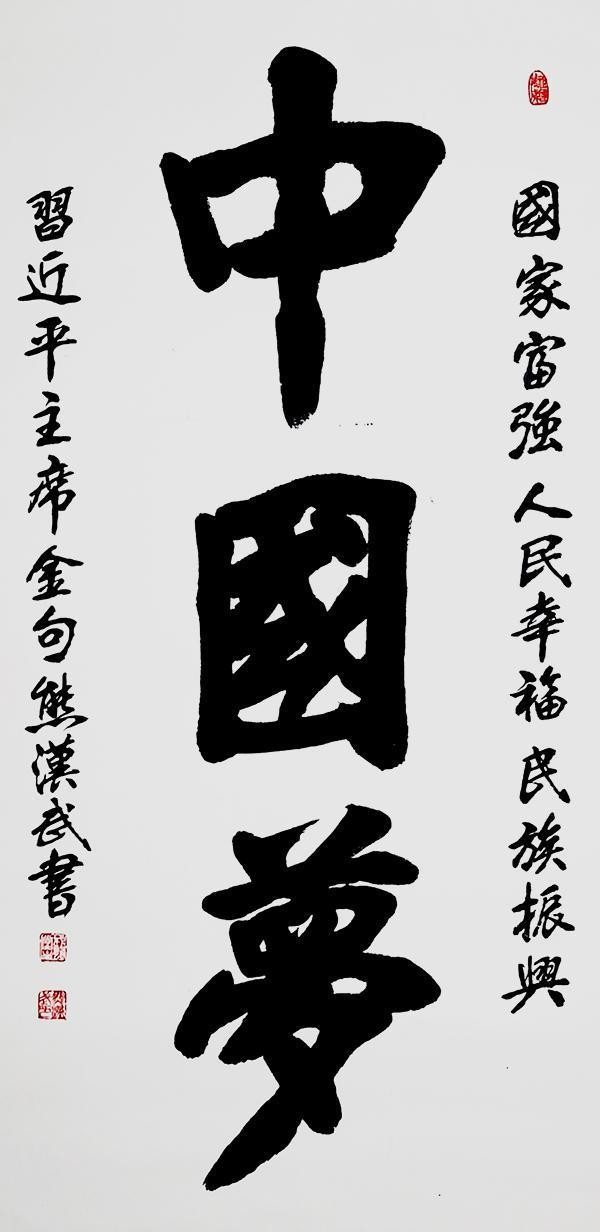 國家富強人民幸福民族振興
中國夢
習近平主席金句熊漢武書